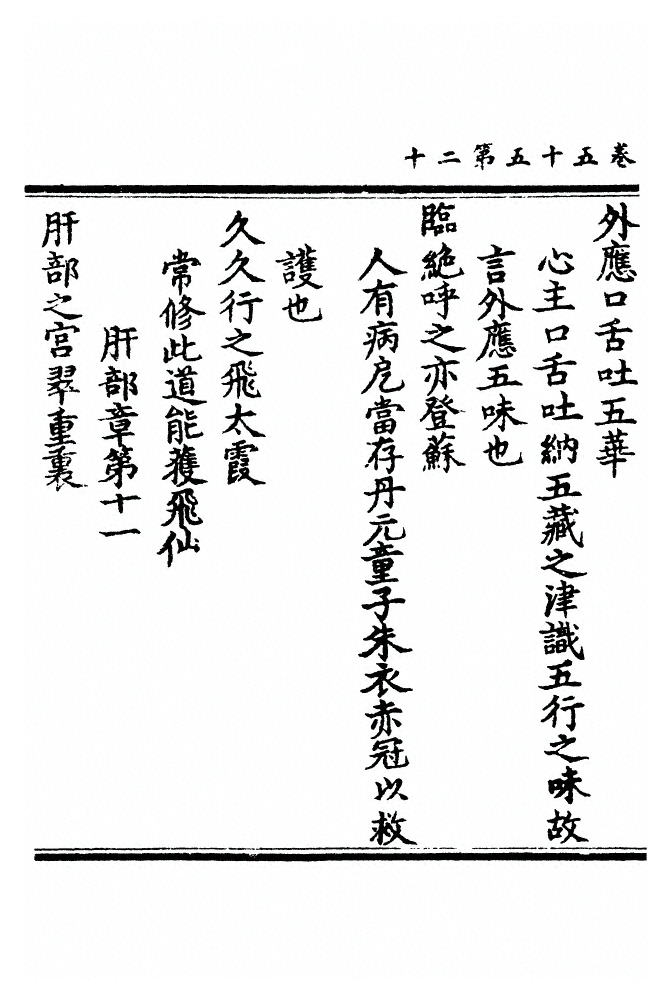 卷五十五第二十
外應口舌吐五華
心主口舌吐納五藏之津識五行之味故
言外應五味也
臨絶呼之亦登蘇
人有病戹當存丹元童子朱衣赤冠以救
護也
久久行之飛太霞
常修此道能獲飛仙
肝部章第十一
肝部之宮翠重裏